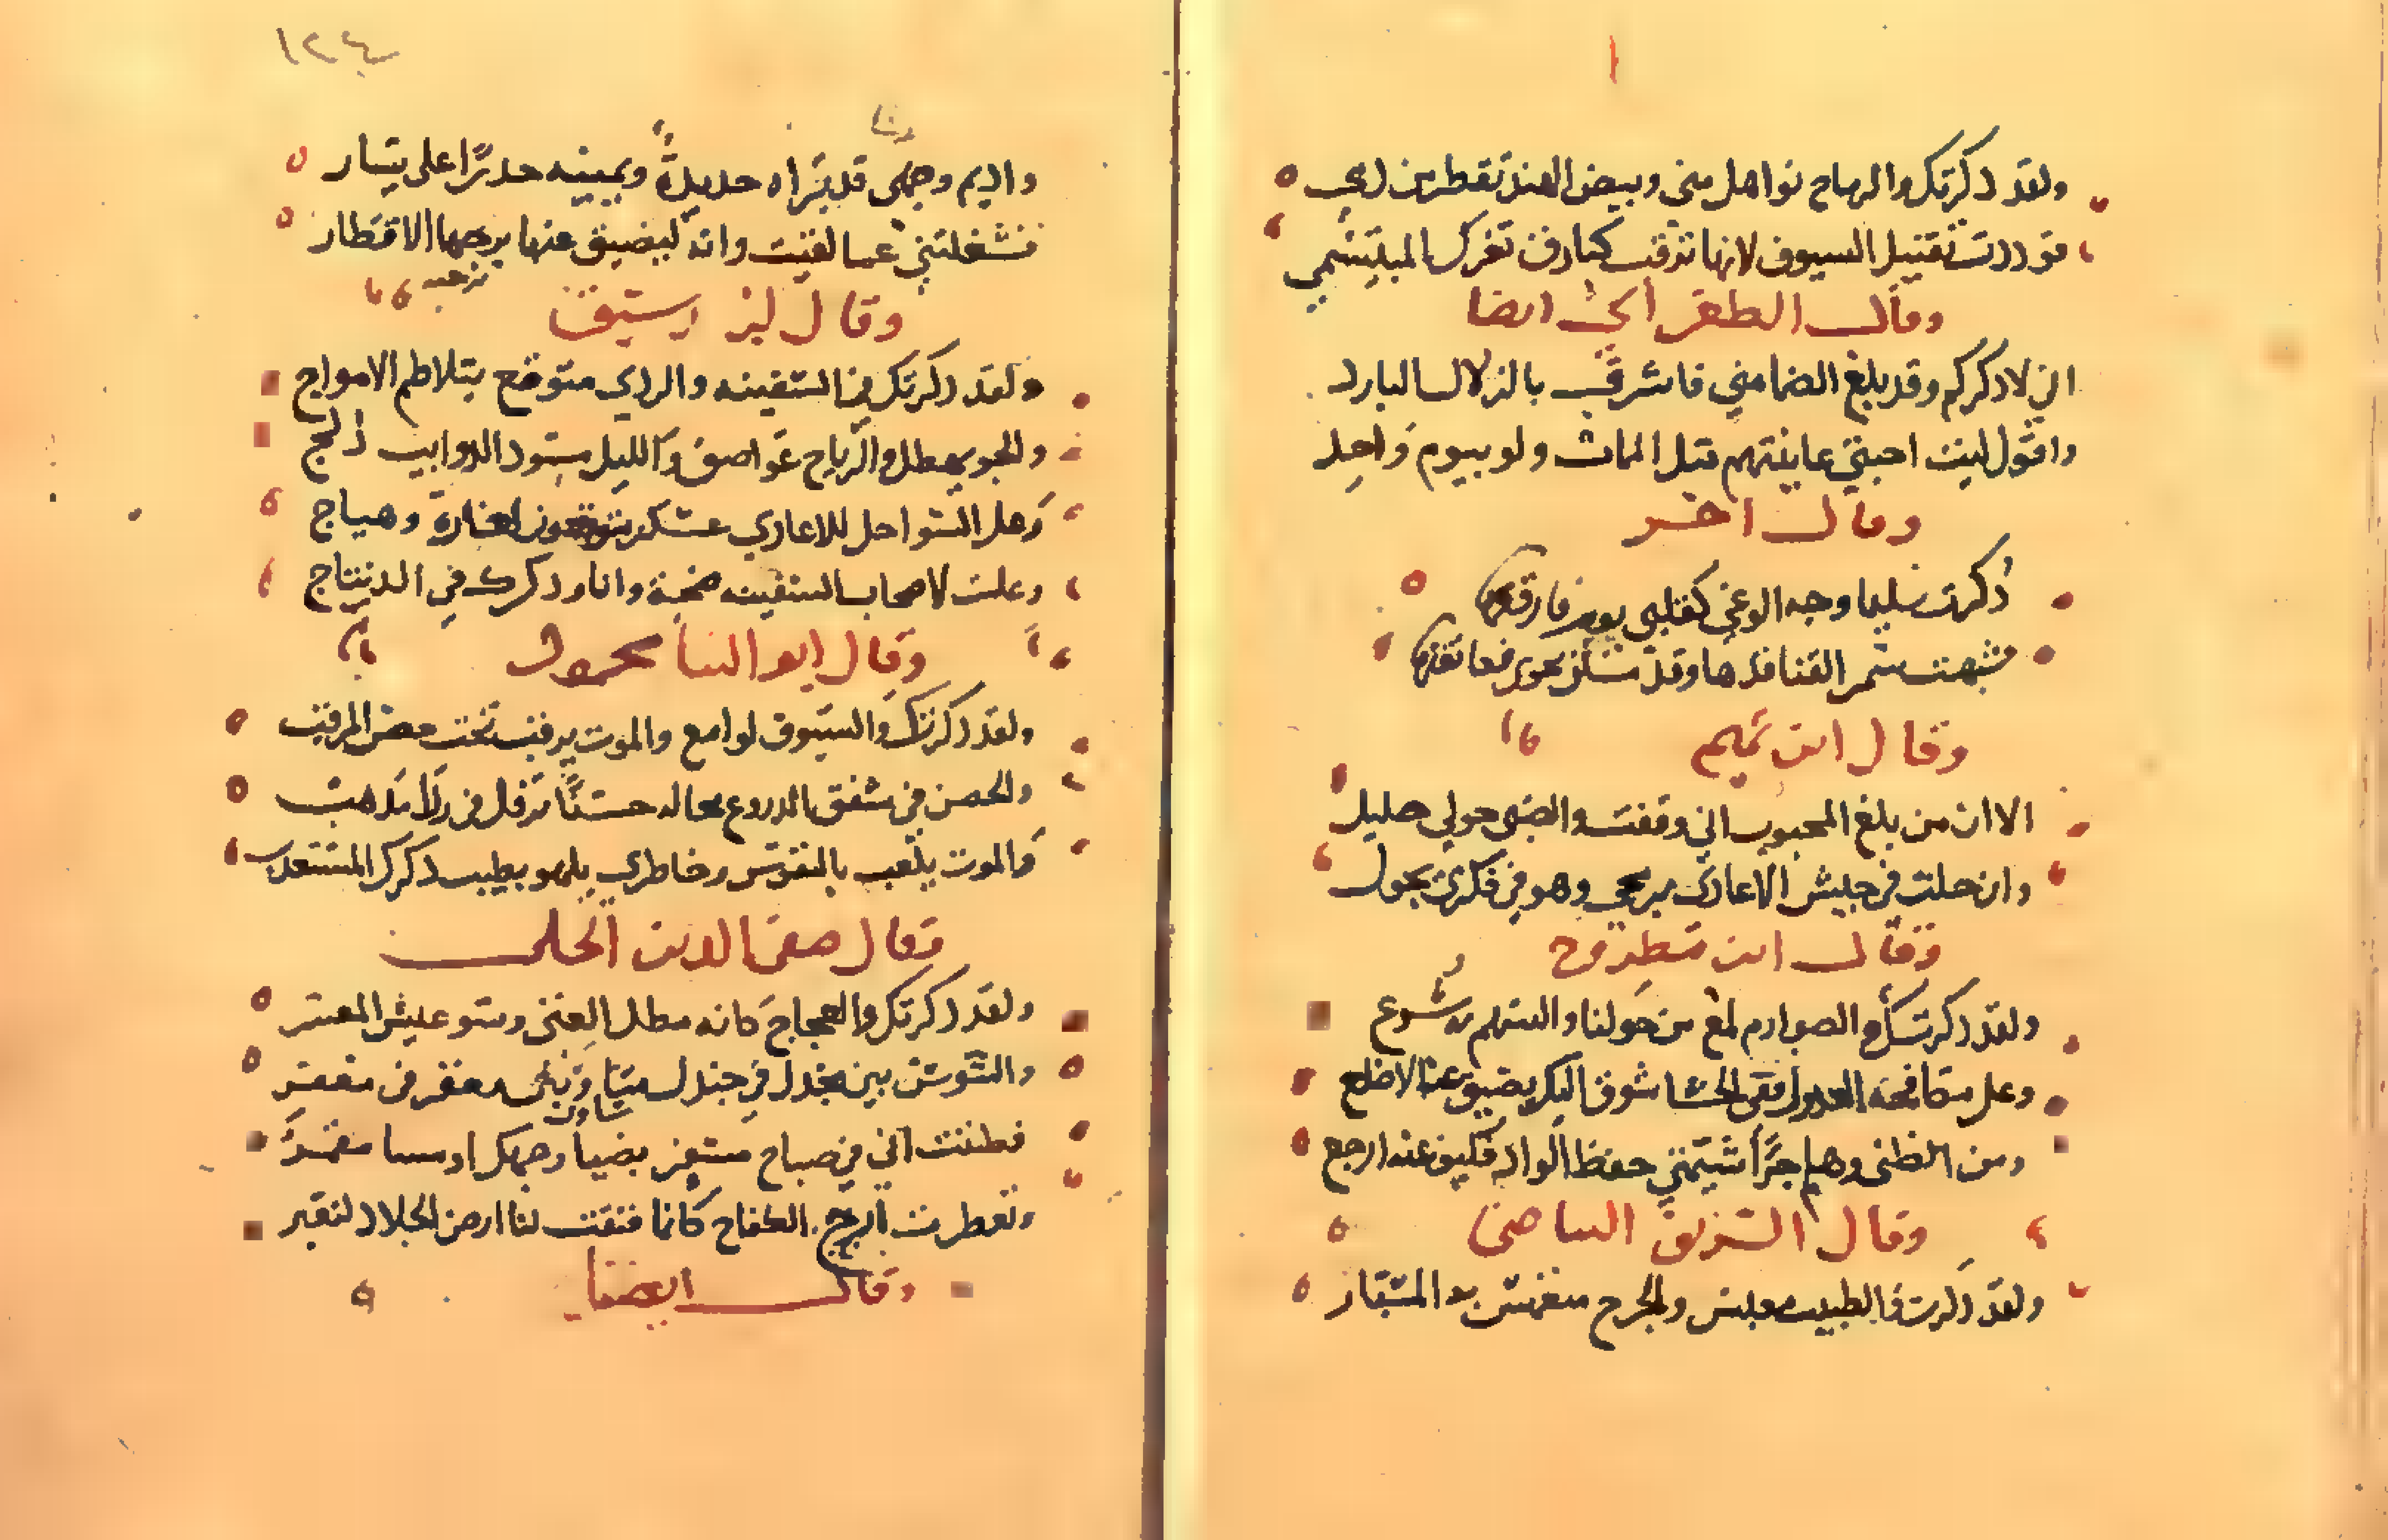 ولقد ذكرتك والرماح نواهل مني وبيض الهند تقطر من دمي
فوددت تقبيل السيوف لانها برقت كبارق ثغرك المبتسم
وقال الطغرائي ايضا
اني لاذكركم وقد بلغ الضما مني فاشرق بالزلال البارد
واقول ليت احبتي عاينتهم قبل الممات ولو بيوم واحد
وقال اخر
ذكرت سليما وحر الوغى كقلبي يوم فارقتها
فشبهت سمر القنا قدها وقد ملن نحوي فعانقتها
وقال ابن تميم
الا من بلغ المحبوب اني وقفت والضبى حولي صليل
وان حملت في جيش الاعادي برمحي وهو في فكري يجول
وقال ابن مطروح
ولقد ذكرتك والصوارم لمع من حولنا والسمهرية شرع
وعلى مكافحة العدو ففي الحشا شوق اليك يضيق عنه الاضلع
ومن الصبى وهلم جرا شيمتي حفظ الوداد فكيف عنه ارجع
وقال الشريف البياضي
ولقد ذكرتك والطبيب معبس والجرح منغمس به المسبار
واديم وجهي قد براه حديده ويمينه حذرا على يسار
فشغلتني عما لقيت وانه ليضيق عنها برحبها الاقطار
وقال ابن رشيق
ولقد ذكرتك في السفينه والردى متوقع بتلاطم الامواج
والجو يهطل والرياح عواصف والليل مسود الذوايب داج
وعلى السواحل للاعادي عسكر يتوقعون لغارة وهياج
وعلت لاصحاب السفينه ضجة وانا وذكرك في الذ تناج
وقال ابو الثنا محمود
ولقد ذكرتك والسيوف لوامع والموت يرقب تحت حصن المرقب
والحصن في شفق الدروع تخاله حسنا ترفل في ردا مذهب
والموت يلعب بالنفوس وخاطري يلهو بطيب ذكرك المستعذب
وقال صفي الدين الحلي
ولقد ذكرتك والعجاج كانه مطل الغني وسو عيش المعسر
والشوس بين مجدل في جندل منا وبين معفر في مغفر
فظننت اني في صباح مسفر بضيا وجهك او مسا مقمر
وتعطرت ارج الكفاح كانما فتقت لنا ارض الجلاد بعنبر
وقال ايضا